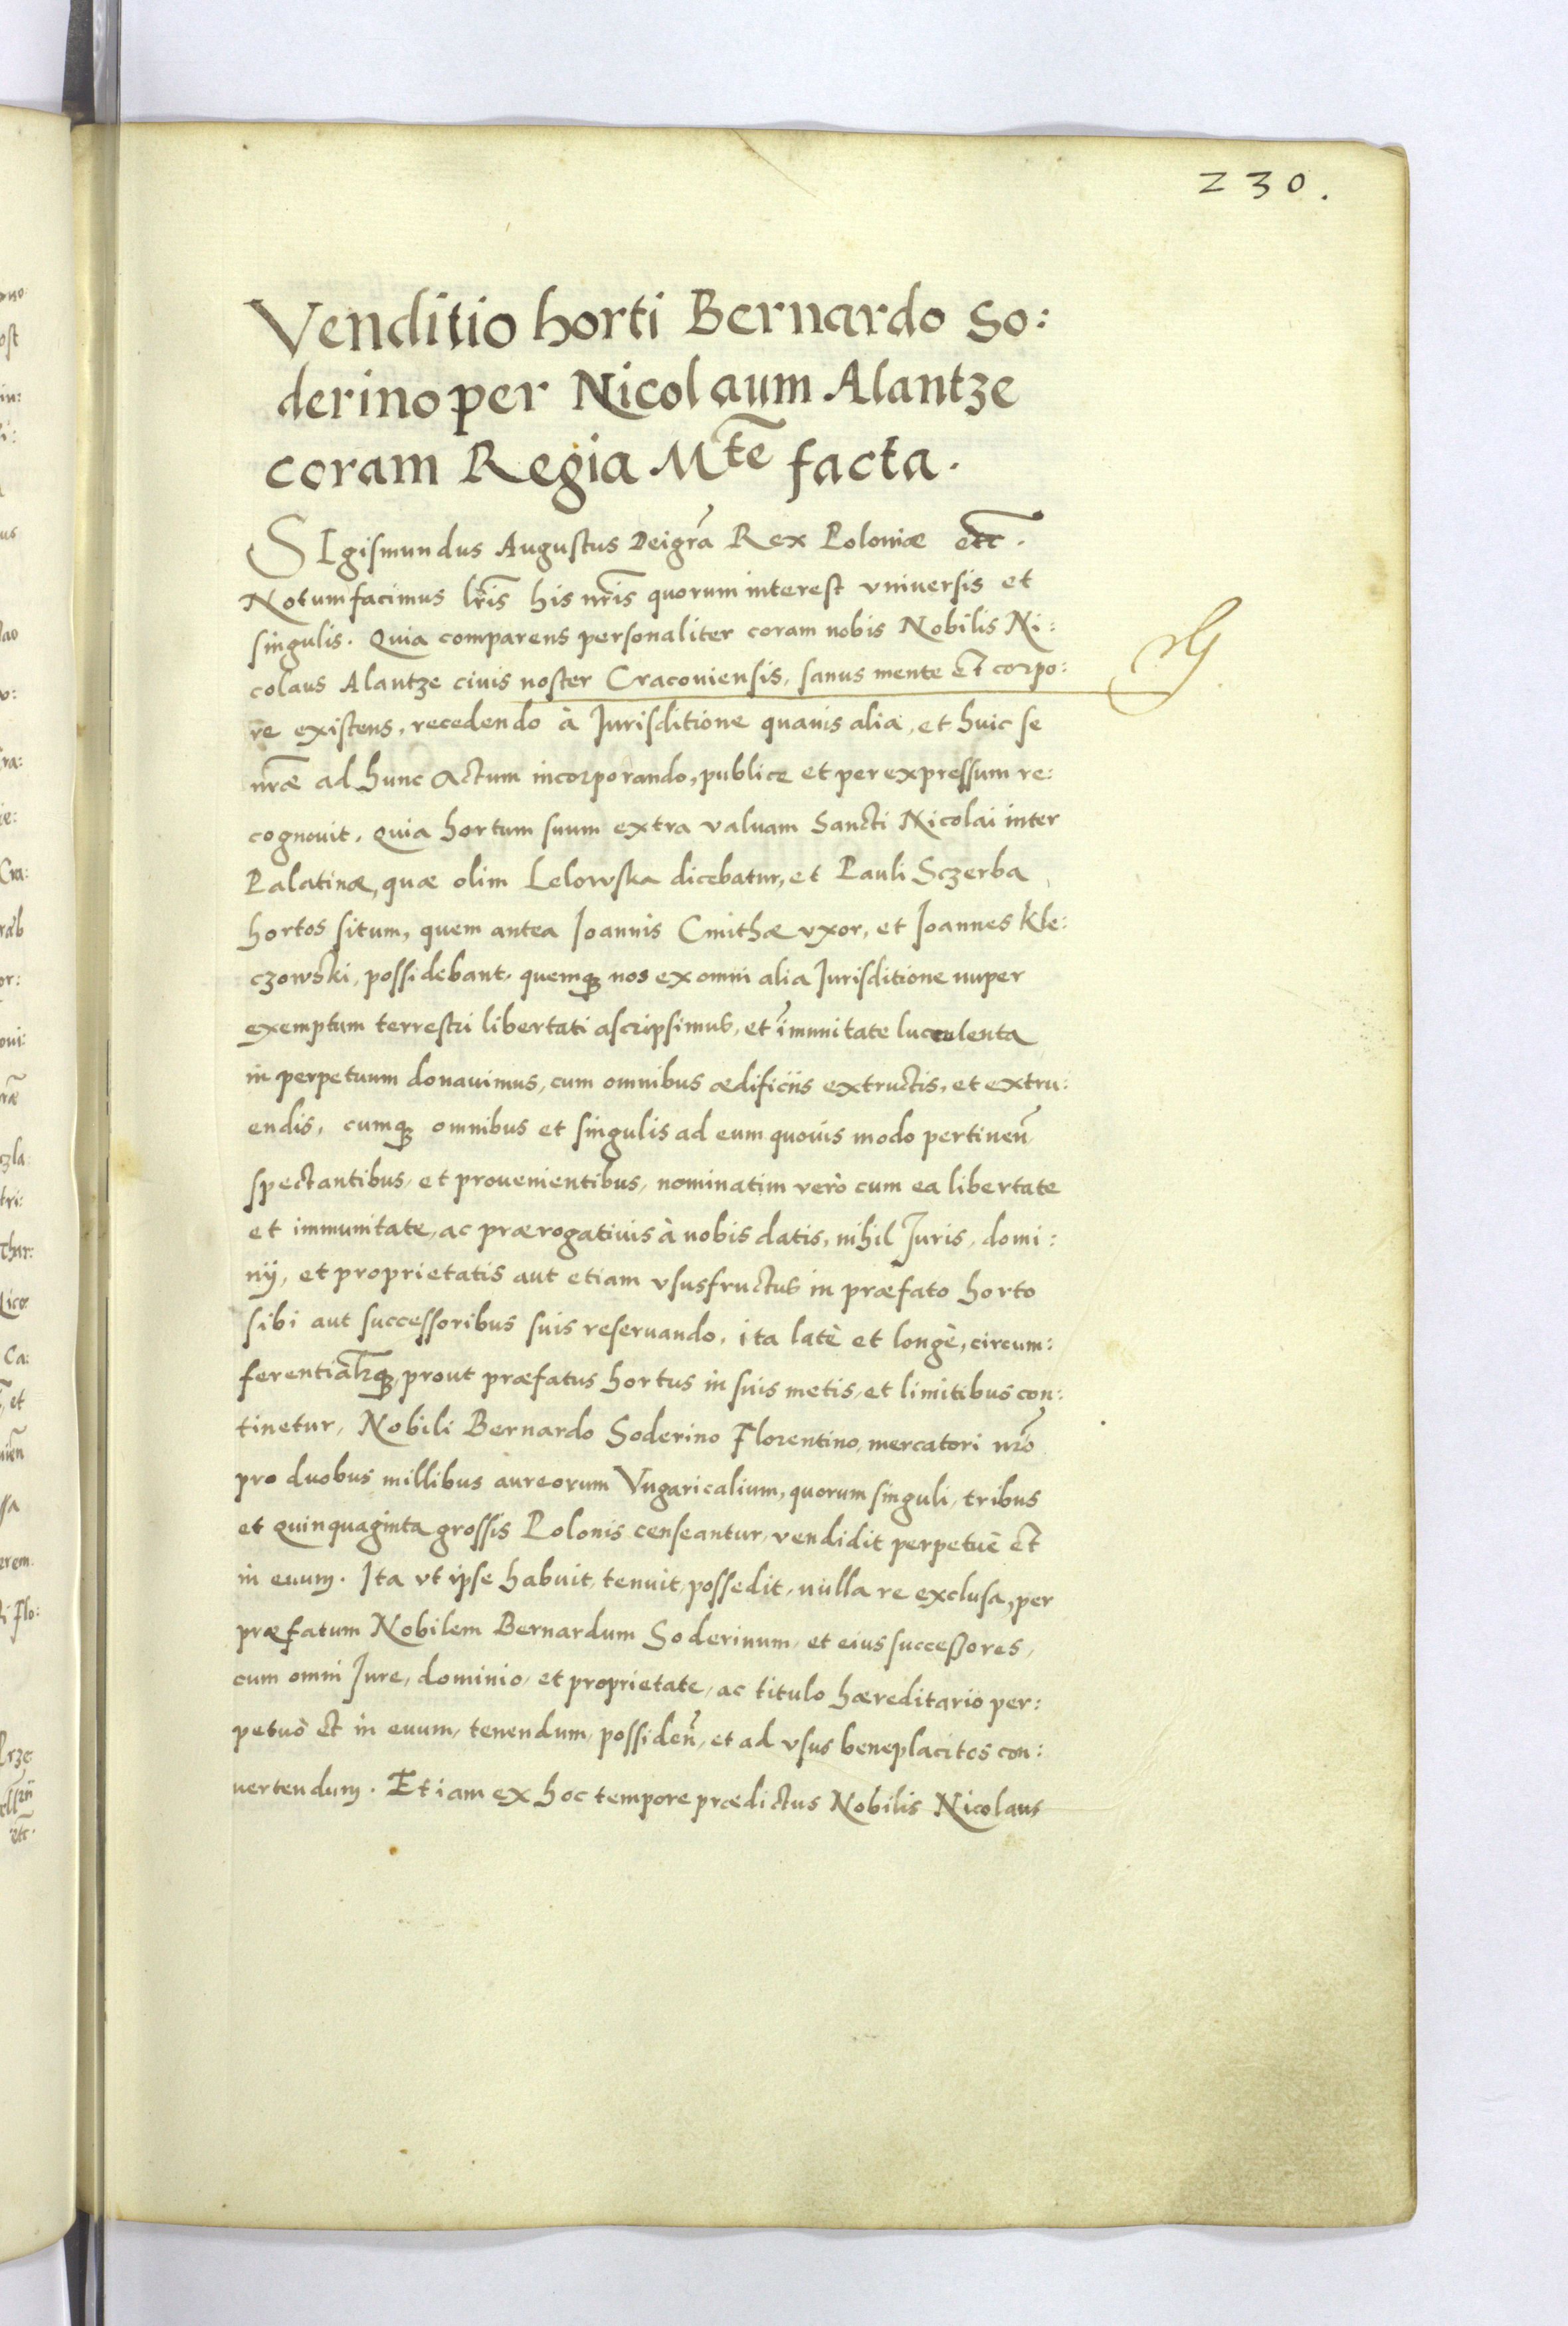 230.
Venditio horti Bernardo So:
derino per Nicolaum Alantze
coram Regia M^te͞ facta.
SIgismundus Augustus Dei gr̃a Rex Poloniæ etc.
Notum facimus lr̃is his nr̃is quorum interest vniuersis et
singulis. Quia comparens personaliter coram nobis Nobilis Ni:
colaus Alantze ciuis noster Cracouiensis, sanus mente et corpo:
re existens, recedendo à Jurisditione quauis alia, et huic se
nr̃æ ad hunc actum incorporando, publice et per expressum re:
cognouit. Quia hortum suum extra valuam Sancti Nicolai inter
Palatinæ, quæ olim Lelowska dicebatur, et Pauli Sczerba
hortos situm, quem antea Joannis Cmithæ vxor, et Joannes Kle:
czowski, possidebant. quemq; nos ex omni alia Jurisditione nuper
exemptum terrestri libertati ascripsimus, et im̃unitate lucculenta
in perpetuum donauimus, cum omnibus ædificiis extructis, et extru:
endis, cumq; omnibus et singulis ad eum quouis modo pertinen̄
spectantibus, et prouenientibus, nominatim verò cum ea libertate
et immunitate, ac prærogatiuis à nobis datis, nihil Juris, domi:
nij, et proprietatis aut etiam vsusfructus in præfato horto
sibi aut successoribus suis reseruando, ita latè et longè, circum:
ferentialr̃q;, prout præfatus hortus in suis metis, et limitibus con:
tinetur, Nobili Bernardo Soderino Florentino, mercatori nr̃o
pro duobus millibus aureorum Vngaricalium, quorum singuli, tribus
et quinquaginta grossis Polonis censeantur, vendidit perpetuè et
in euum. Ita vt ipse habuit, tenuit, possedit, nulla re exclusa, per
præfatum Nobilem Bernardum Soderinum, et eius successores,
cum omni Jure, dominio, et proprietate, ac titulo hæreditario per:
petuò et in euum, tenendum, possiden̄, et ad vsus beneplacitos con:
uertendum. Et iam ex hoc tempore prædictus Nobilis Nicolaus